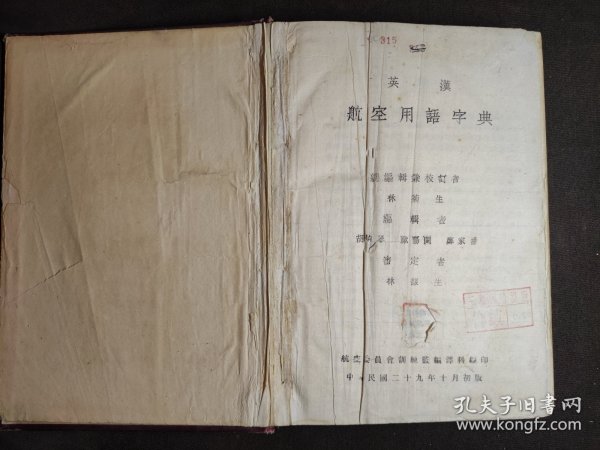 315
英漢
航空用語字典
總編輯兼校訂者
林 生
編輯者
審定者
林 生
航空委員會訓練監編譯科 印
中 民國二十九年十月初版
孔夫子旧书网
www.kongfz.com